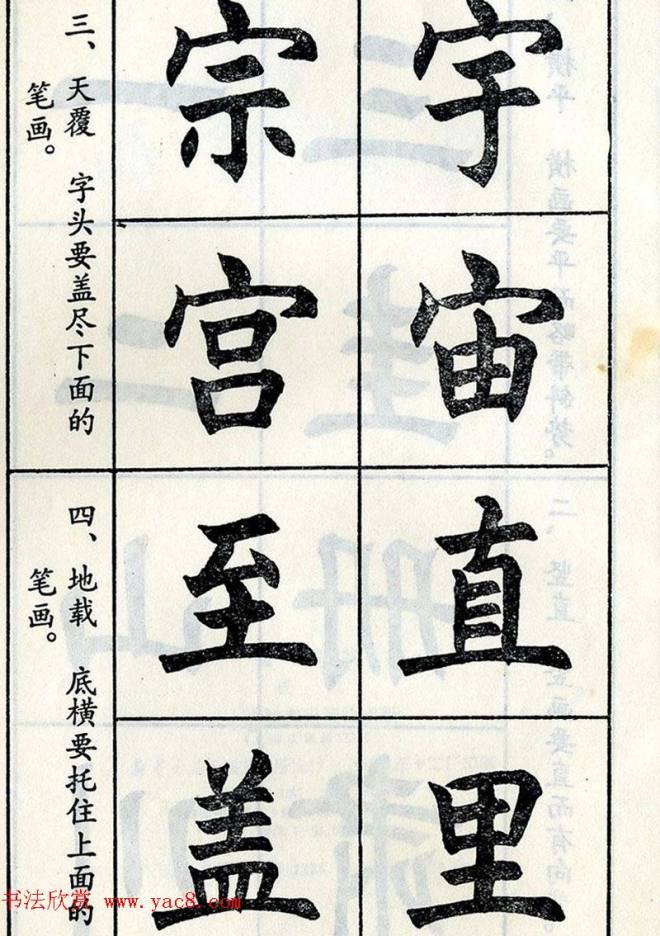 宇宙
宗宫
三、天覆 字头要盖尽下面的
笔画。
直里
至盖
四、地载 底横要托住上面的
笔画。
书法欣赏 www.yac8.com